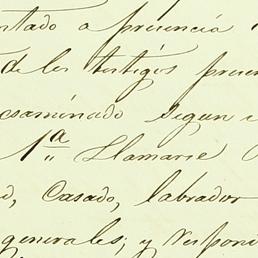 ntado a presencia
de los testigos presen
esaminado segun e
1ª Llamarse
d, Casado, labrador
generales; y respondi